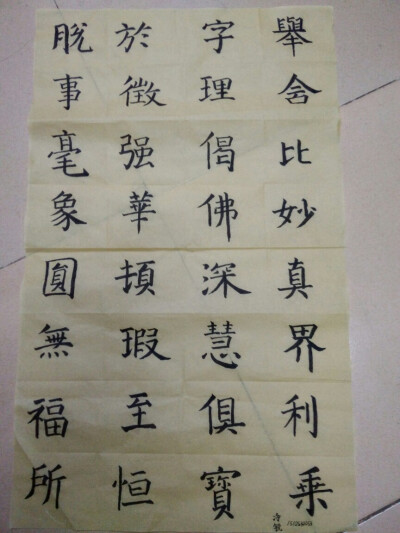 舉舍比妙真界利乘
字理偈佛深慧俱寶
於徵强華頓瑕至恒
脫事毫象圓無福所